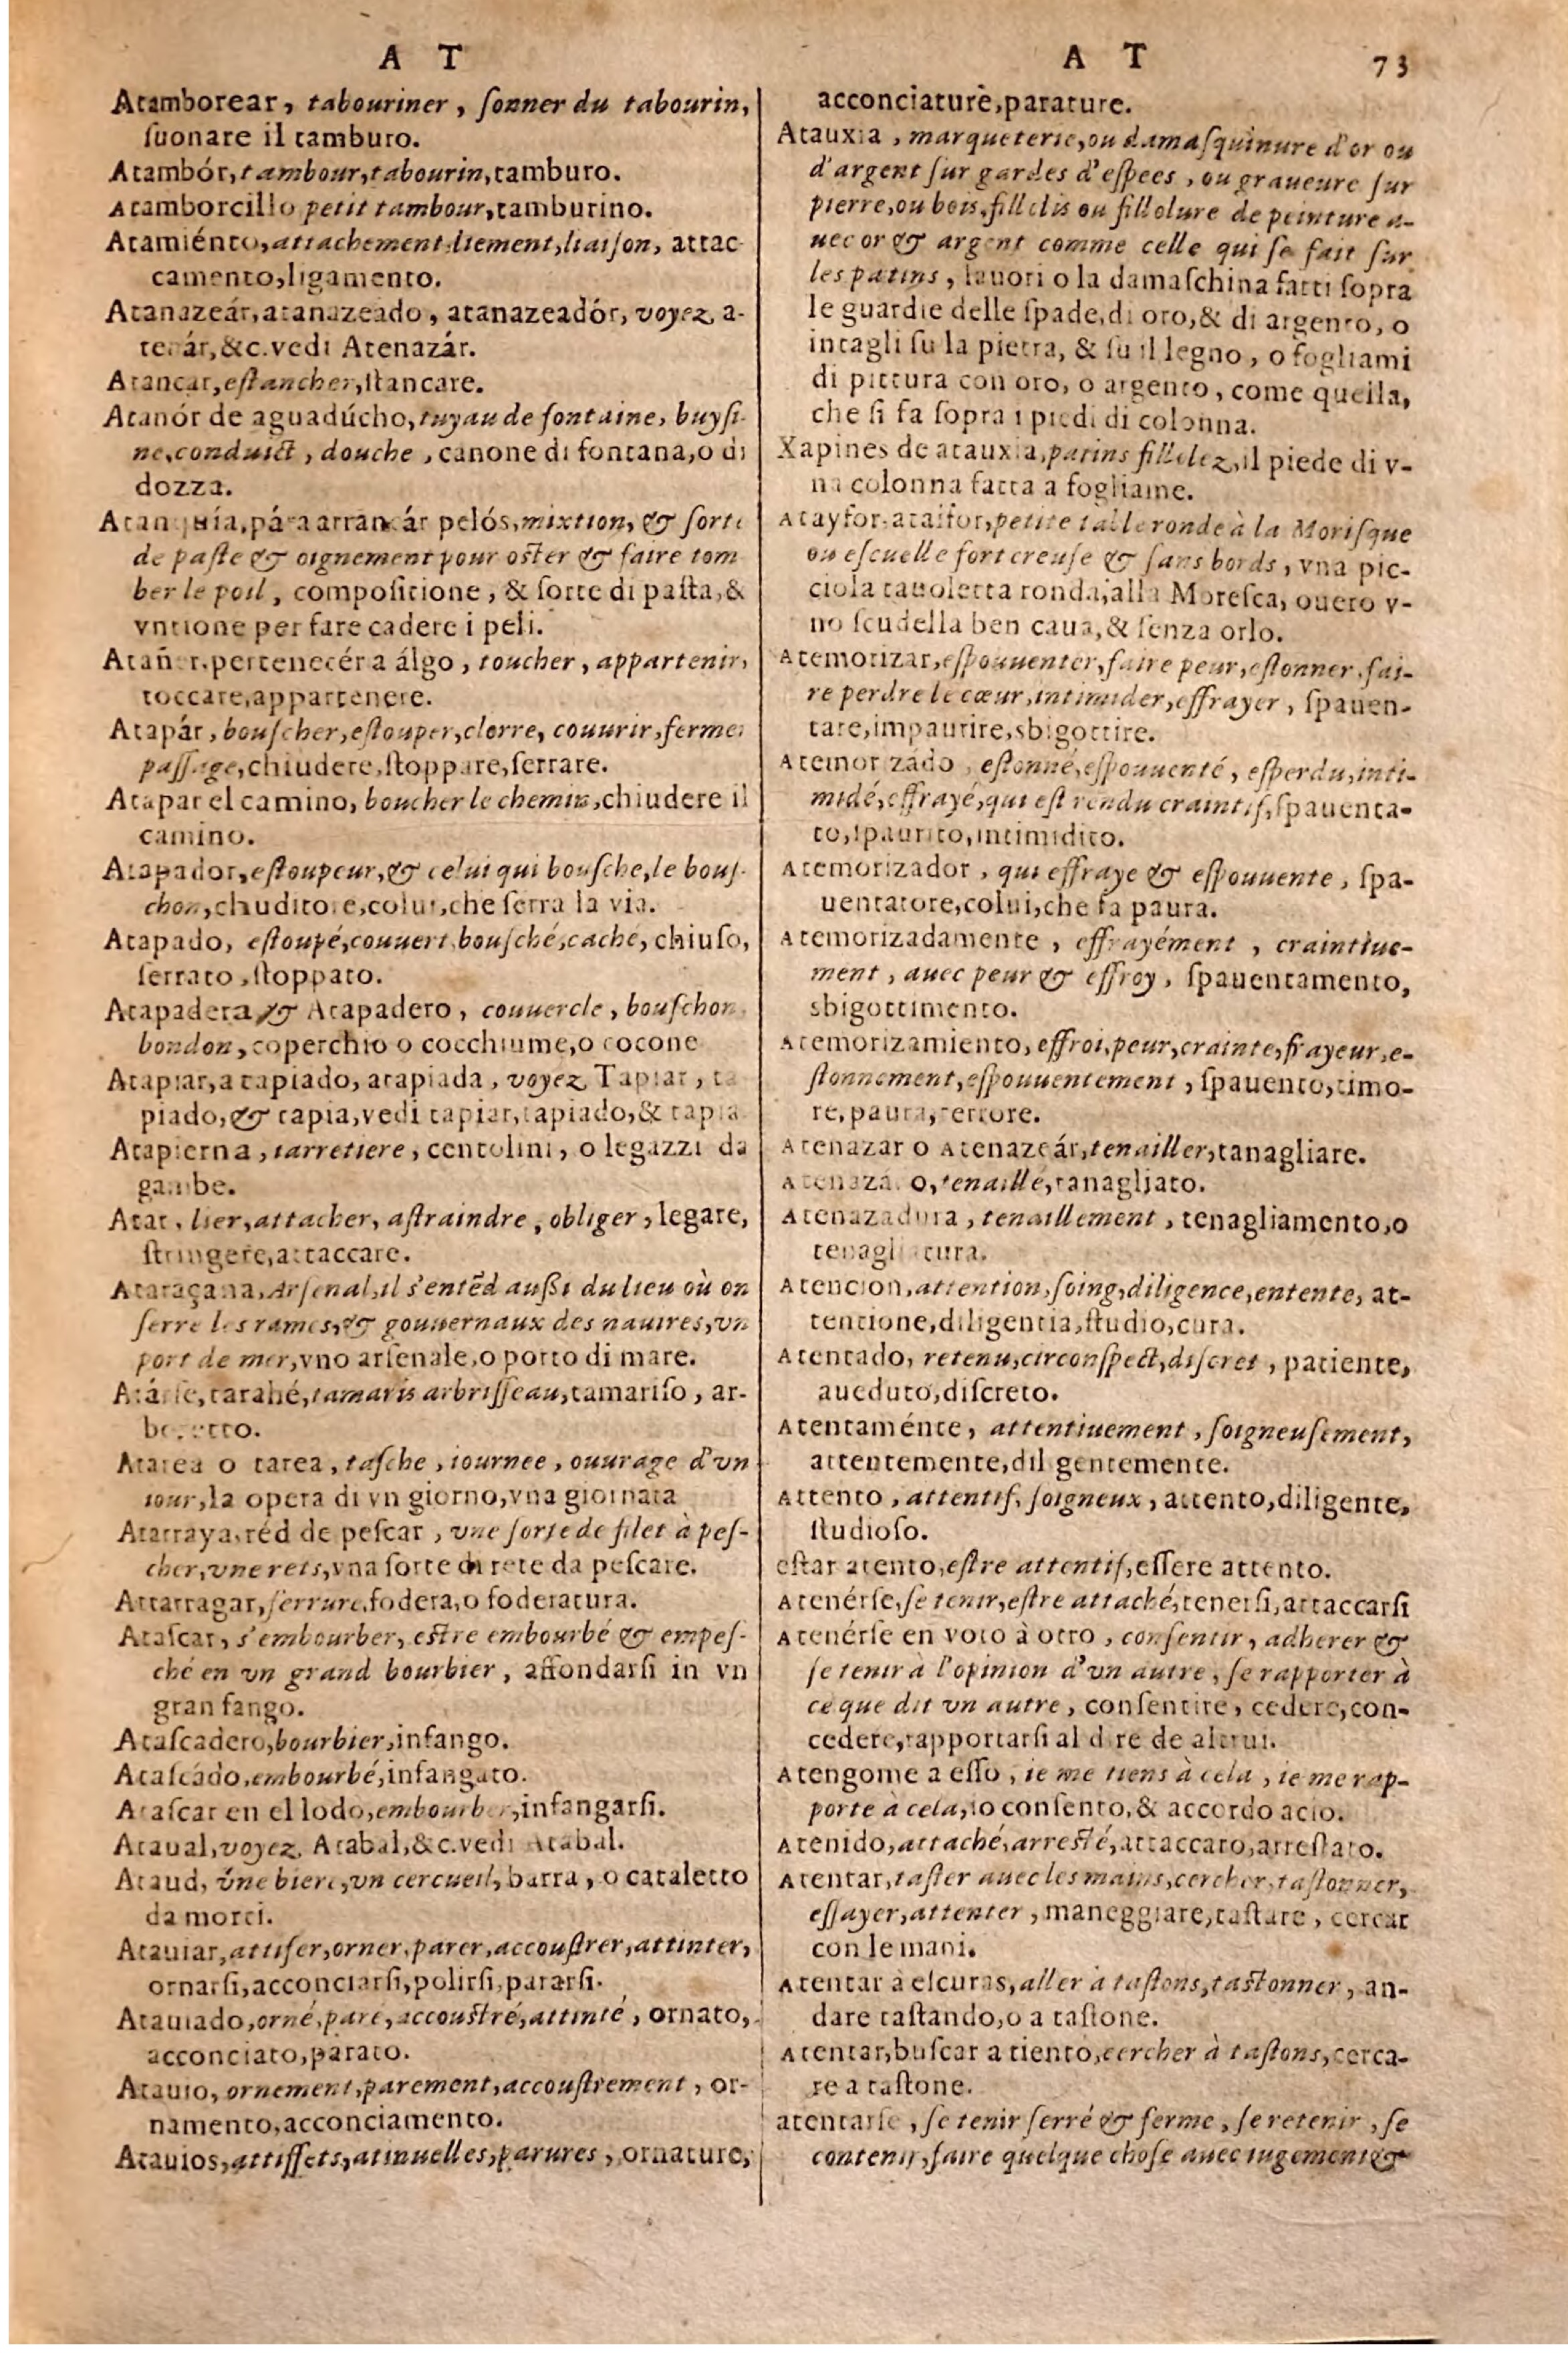 A T
Atamborear, tabouriner, ſonner du tabourin,
ſuonare il tamburo.
Atambór, tambour, tabourin, tamburo.
Atamborcillo petit tambour, tamburino.
Atamiénto, attachement, liement, liaiſon, attac-
camento, ligamento.
Atanazeár, atanazeado, atanazeadór, voyez a-
&c. vedi Atenazár.
Atancar, eſtancher, ſtancare.
Atanór de aguadúcho, tuyau de fontaine, buyſi-
ne, conduict, douche, canone di fontana, o di
dozza.
Atanquía, pára arrancár pelós, mixtion, & ſorte
de paſte & oignement pour oſter & faire tom
ber le poil, compoſitione, & ſorte di paſta, &
vntione per fare cadere i peli.
Atañer, pertenecér a álgo, toucher, appartenir,
toccare, appartenere.
Atapár, bouſcher, eſtouper, clorre, couurir, fermer
paſſage, chiudere, ſtoppare, ſerrare.
Atapar el camino, boucher le chemin, chiudere il
camino.
Atapador, eſtoupeur, & celui qui bouſche, le bouſ-
chon, chuditore, colui, che ſerra la via.
Atapado, eſtoupé, couuert, bouſché, caché, chiuſo,
ſerrato, ſtoppato.
Atapadera & Atapadero, couuercle, bouſchon,
bondon, coperchio o cocchiume, o cocone
Atapiar, atapiado, atapiada, voyez Tapiar, ta
piado, & tapia, vedi tapiar, tapiado, & tapia
Atapierna, iarretiere, centolini, o legazzi da
gambe.
Atar, lier, attacher, aſtraindre, obliger, legare,
ſtringere, attaccare.
Ataraçana, Arſenal, il s'entẽd außi du lieu où on
ſerre les rames, & gouuernaux des nauires, vn
port de mer, vno arſenale, o porto di mare.
tarahé, tamaris arbriſſeau, tamariſo, ar-
Atarea o tarea, taſche, iournee, ouurage d'vn
iour, la opera di vn giorno, vna giornata
Atarraya, réd de peſcar, vne ſorte de filet à peſ-
cher, vne rets, vna ſorte di rete da peſcare.
Attarragar, ferrure, fodera, o foderatura.
Ataſcar, s'embourber, eſtre embourbé & empeſ-
ché en vn grand bourbier, affondarſi in vn
gran fango.
Ataſcadero, bourbier, infango.
Ataſcádo, embourbé, infangato.
Ataſcar en el lodo, embourber, infangarſi.
Ataual, voyez Atabal, &c. vedi Atabal.
Ataud, vne biere, vn cercueil, barra, o cataletto
da morti.
Atauiar, attifer, orner, parer, accouſtrer, attinter,
ornarſi, acconciarſi, polirſi, pararſi.
Atauiado, orné, paré, accouſtré, attinté, ornato,
acconciato, parato.
Atauio, ornement, parement, accouſtrement, or-
namento, acconciamento.
Atauios, attiffets, atinuelles, parures, ornature,
A T 73
acconciature, parature.
Atauxia, marqueterie, ou damaſquinure d'or ou
d'argent ſur gardes d'eſpees, ou graueure ſur
pierre, ou bois, fillelis ou fillolure de peinture a-
uec or & argent comme celle qui ſe fait ſur
les patins, lauori o la damaſchina fatti ſopra
le guardie delle ſpade, di oro, & di argento, o
intagli ſu la pietra, & ſu il legno, o fogliami
di pittura con oro, o argento, come quella,
che ſi fa ſopra i piedi di colonna.
Xapines de atauxia, patins fillelez, il piede di v-
na colonna fatta a fogliame.
Atayfor, ataifor, petite table ronde à la Moriſque
ou eſcuelle fort creuſe & ſans bords, vna pic-
ciola tauoletta ronda, alla Moreſca, ouero v-
no ſcudella ben caua, & ſenza orlo.
Atemorizar, eſpouuenter, faire peur, eſtonner, fai-
re perdre le cœur, intimider, effrayer, ſpauen-
tare, impaurire, sbigottire.
Atemorizádo, eſtonné, eſpouuenté, eſperdu, inti-
midé, effrayé, qui eſt rendu craintif, ſpauenta-
to, ſpaurito, intimidito.
Atemorizador, qui effraye & eſpouuente, ſpa-
uentatore, colui, che fa paura.
Atemorizadamente, effrayément, craintiue-
ment, auec peur & effroy, ſpauentamento,
sbigottimento.
Atemorizamiento, effroi, peur, crainte, frayeur, e-
ſtonnement, eſpouuentement, ſpauento, timo-
re, paura, terrore.
Atenazar o Atenazeár, tenailler, tanagliare.
Atenazado, tenaillé, tanagliato.
Atenazadura, tenaillement, tenagliamento, o
tenagliatura.
Atencion, attention, ſoing, diligence, entente, at-
tentione, diligentia, ſtudio, cura.
Atentado, retenu, circonſpect, diſcret, patiente,
aueduto, diſcreto.
Atentaménte, attentiuement, ſoigneuſement,
attentemente, diligentemente.
Attento, attentif, ſoigneux, attento, diligente,
ſtudioſo.
eſtar atento, eſtre attentif, eſſere attento.
Atenérſe, ſe tenir, eſtre attaché, tenerſi, attaccarſi
Atenérſe en voto à otro, conſentir, adherer &
ſe tenir à l'opinion d'vn autre, ſe rapporter à
ce que dit vn autre, conſentire, cedere, con-
cedere, rapportarſi al dire de altrui.
Atengome a eſſo, ie me tiens à cela, ie me rap-
porte à cela, io conſento, & accordo a cio.
Atenido, attaché, arreſté, attaccato, arreſtato.
Atentar, taſter auec les mains, cercher, taſtonner,
eſſayer, attenter, maneggiare, taſtare, cercar
con le mani.
Atentar à eſcuras, aller à taſtons, taſtonner, an-
dare taſtando, o a taſtone.
Atentar, buſcar a tiento, cercher à taſtons, cerca-
re a taſtone.
atentarſe, ſe tenir ſerré & ferme, ſe retenir, ſe
contenir, faire quelque choſe auec iugement &